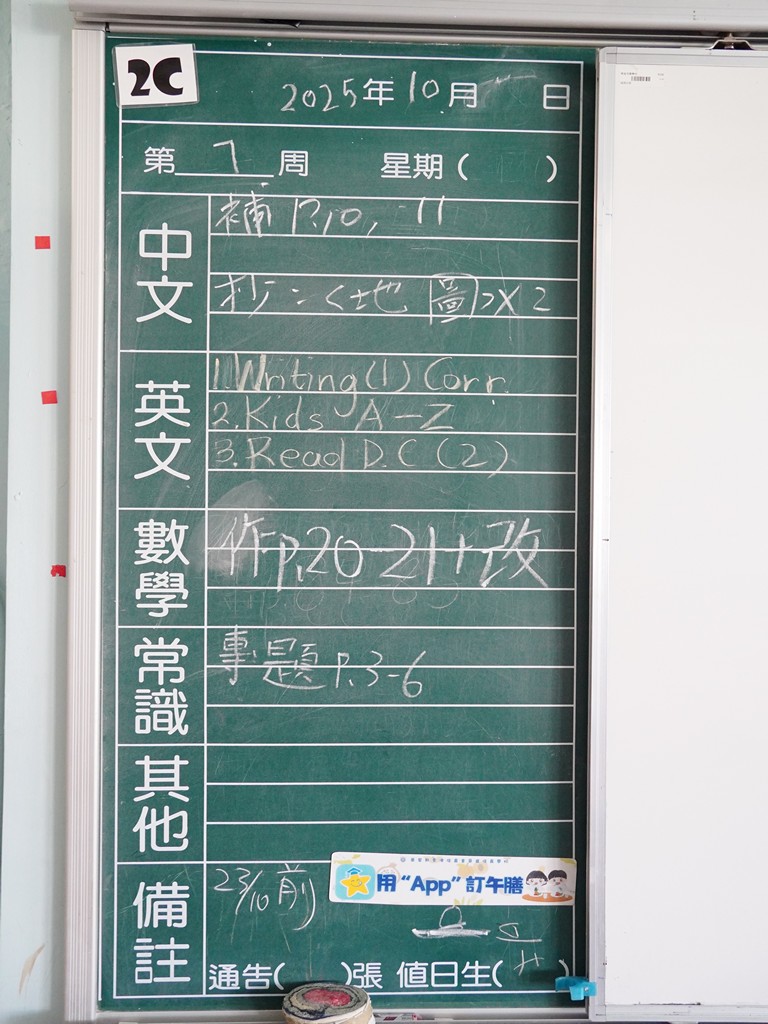 2C
2025年10月 日
第 7 周 星期( )
中文
補 P.10, 11
抄:<地圖>x2
英文
1.Writing(1) Corr.
2.Kids A-Z
3.Read D.C (2)
數學
作p.20-21+改
常識
專題 P.3-6
其他
備註
23/10前
用“App”訂午膳
通告( )張 值日生( )